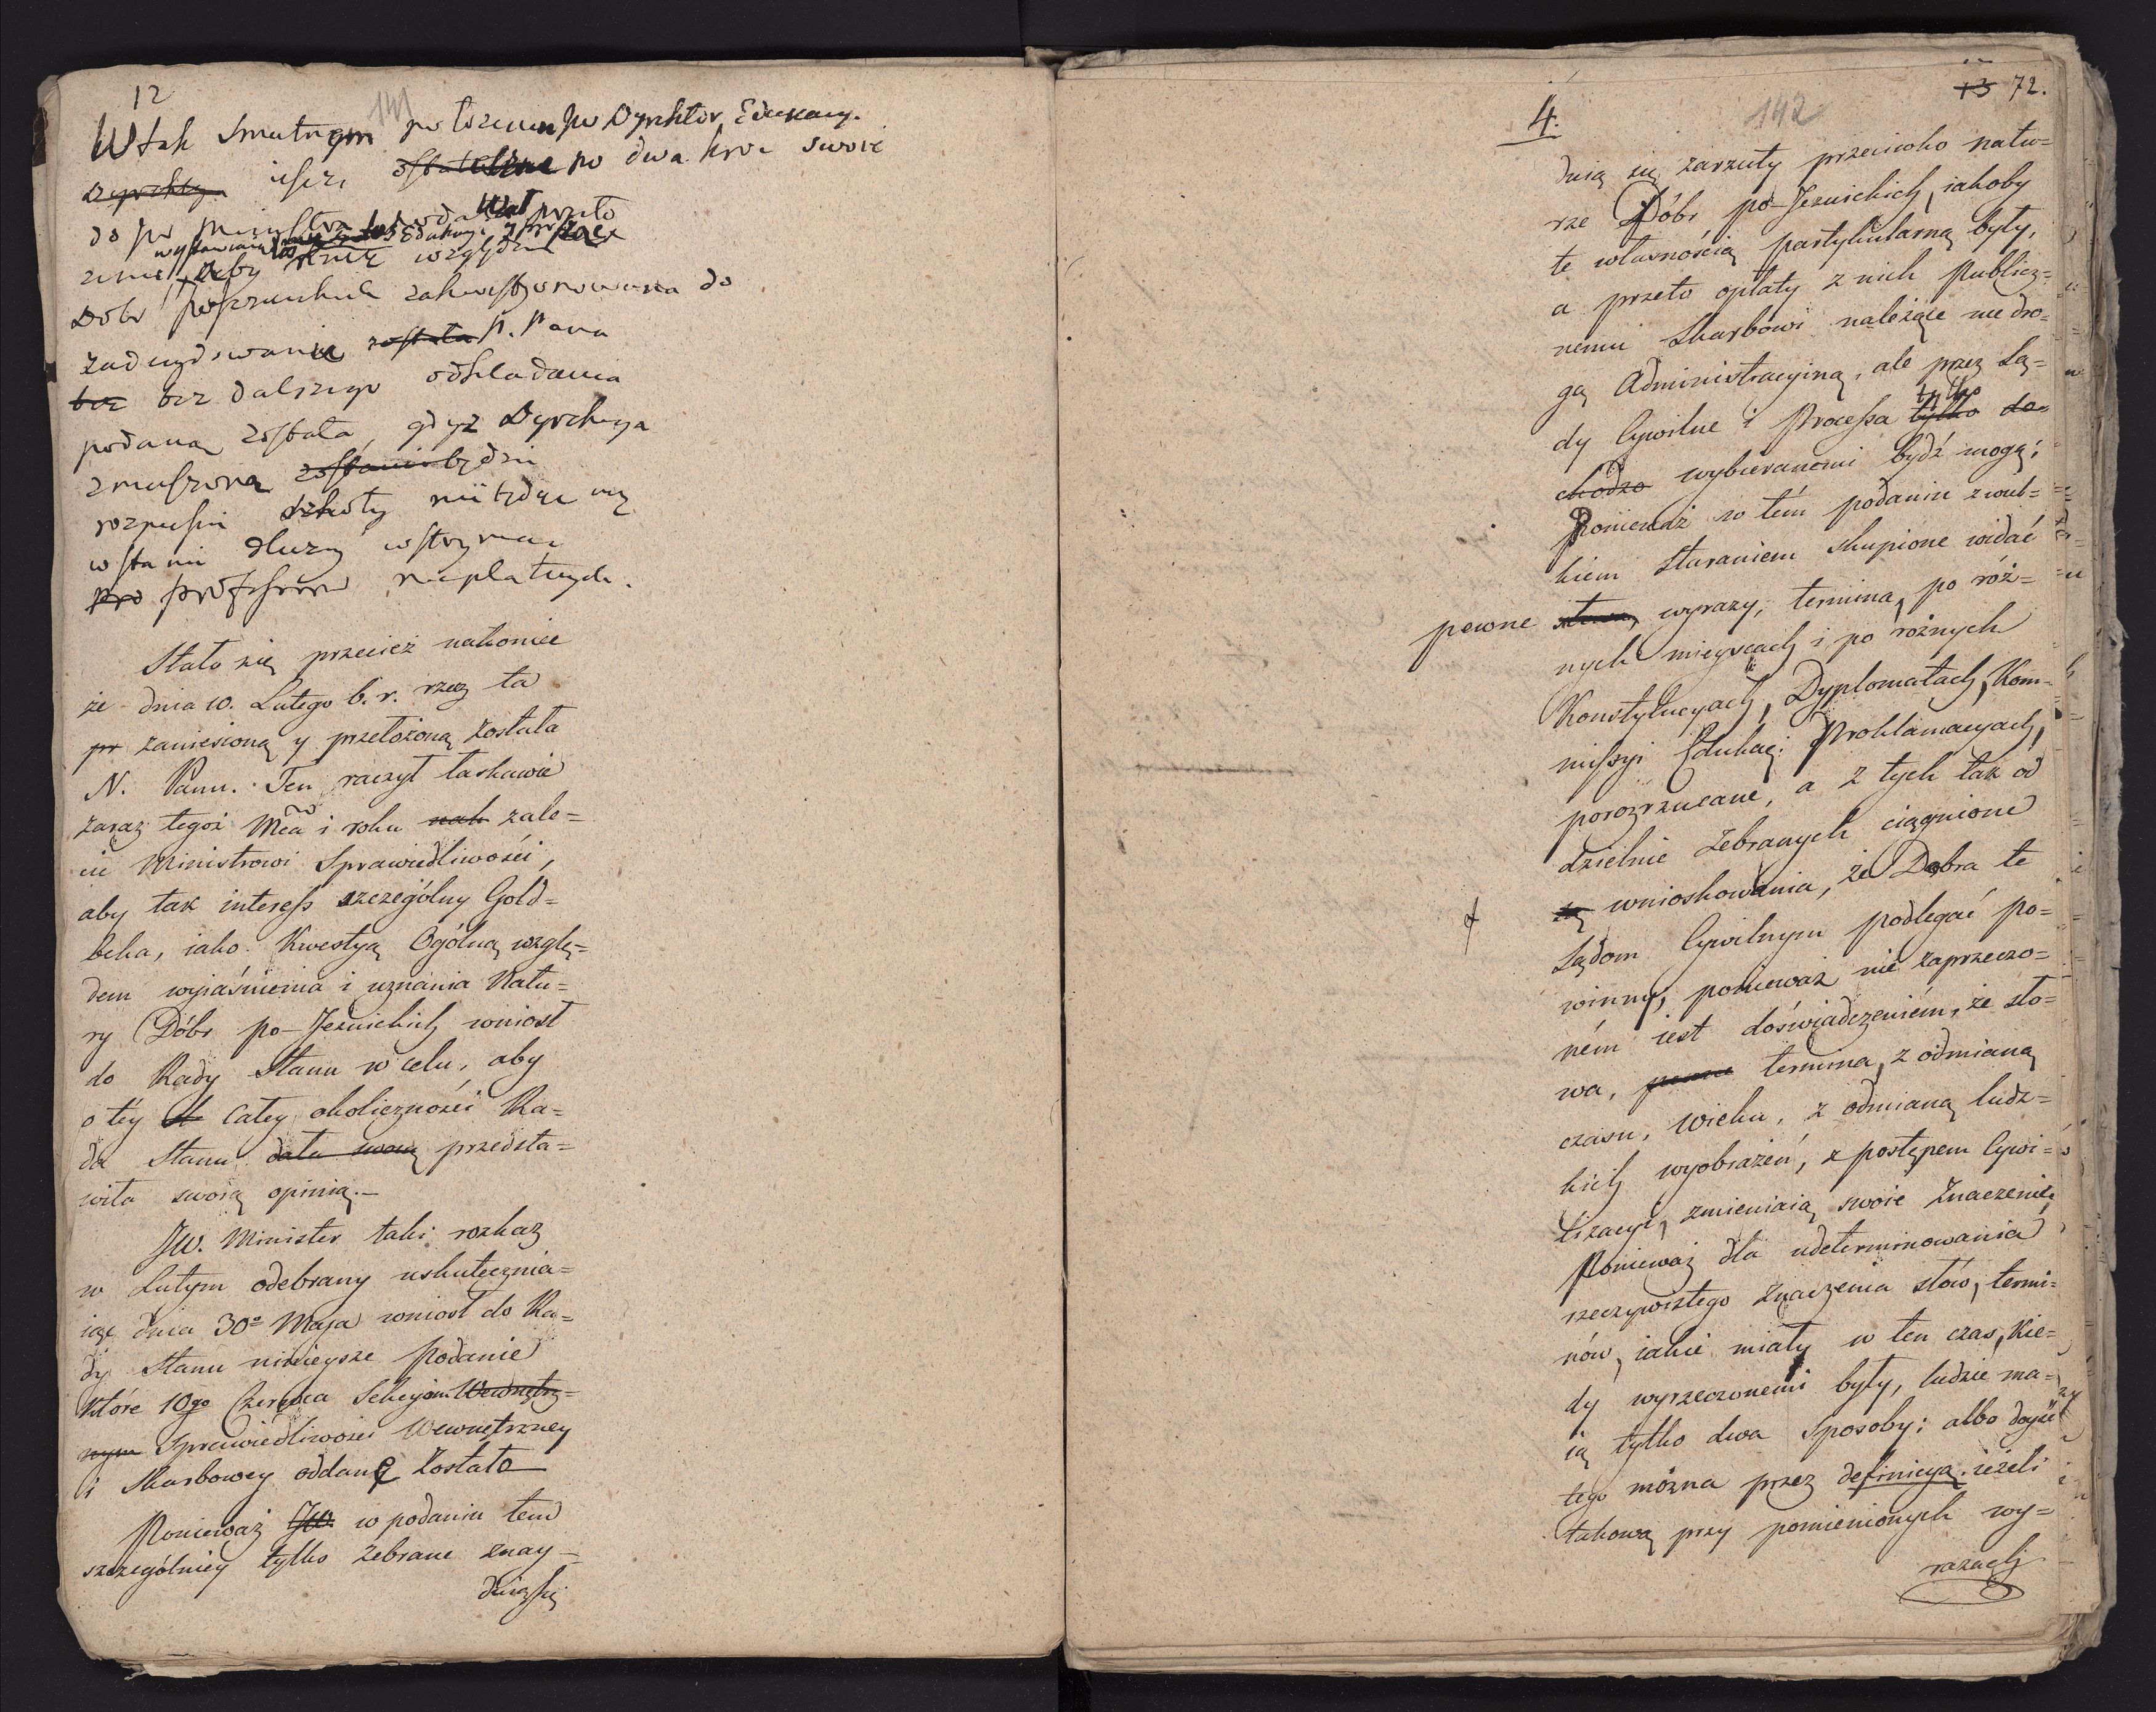 12
141
W tak smutnym położeniu JW Dyrektor Edukacy.
Dyrekcya ieszcze ostatecznie po dwa kroć swoie
do JW Ministra
względem
Dóbr pojezuickich zakwestyonowana do
zadecydowania została N. Pana
bez bez dalszego odkładania
podaną została, gdyż Dyrekcya
zmuszoną zostanie będzie
rozpuścić szkoły nie będąc iuż
w stanie dłużey wstrzymać
Pro professorów niepłatnych.
Stało się przecież nakoniec
że dnia 10. Lutego b. r. rzecz ta
pr zaniesioną y przełożoną została
N. Panu. Ten raczył łaskawie
zaraz tegoż Mca i roku nak zale=
cić Ministrowi Sprawiedliwości,
aby tak interess szczególny Gold=
beka, iako Kwestyą Ogólną wzglę=
dem wyiaśnienia i uznania Natu=
ry Dóbr po-Jezuickich wniosł
do Rady Stanu w celu, aby
o téy st całey okoliczności Ra=
da Stanu dała swoią przedsta=
wiła swoią opinią.—
JW. Minister taki rozkaz
w Lutym odebrany uskutecznia=
iąc dnia 30º Maja wniosł do Ra=
dy Stanu ninieysze podanie
które 10go Czerwca Sekcyom Wewnętrz=
nym Sprawiedliwości Wewnętrzney
i Skarbowey oddane zostało
Ponieważ JW. w podaniu tem
szczególniey tylko zebrane znay=
duią się
4.
142
13 72.
duią się zarzuty przeciwko natu=
rze Dóbr po-Jezuickich, iakoby
te własnością partykularną były,
a przeto opłaty z nich Publicz=
nemu Skarbowi należące nie dro=
gą Administracyiną, ale przez Są=
dy Cywilne i Processa tylko do=
tylko
chodzo wybieranemi bydź mogą;
Ponieważ w tém podaniu z wiel=
kiem staraniem skupione widać
pewne słowa, wyrazy, termina, po róż=
nych mieyscach i po różnych
Konstytucyach, Dyplomatach, Kom=
missyi Edukacyi Proklamacyach,
porozrzucane, a z tych tak od
dzielnie zebranych ciągnione
są wnioskowania, że Dobra te
Sądom Cywilnym podlegać po=
winny, ponieważ nie zaprzeczo=
ném iest doświadczeniem, że sło=
wa, pewne termina, z odmianą
czasu, wieku, z odmianą ludz=
kich wyobrażeń, z postępem Cywi=
lizacyi, zmieniaią swoie znaczenie,
Ponieważ dla udeterminowania
rzeczywistego znaczenia słów, termi=
nów, iakie miały w ten czas, Kie=
dy wyrzeczonemi były, ludzie ma=
ią tylko dwa sposoby: albo doyść
tego można przez definicyą. ieżeli
takowa przy pomienionych wy=
razach